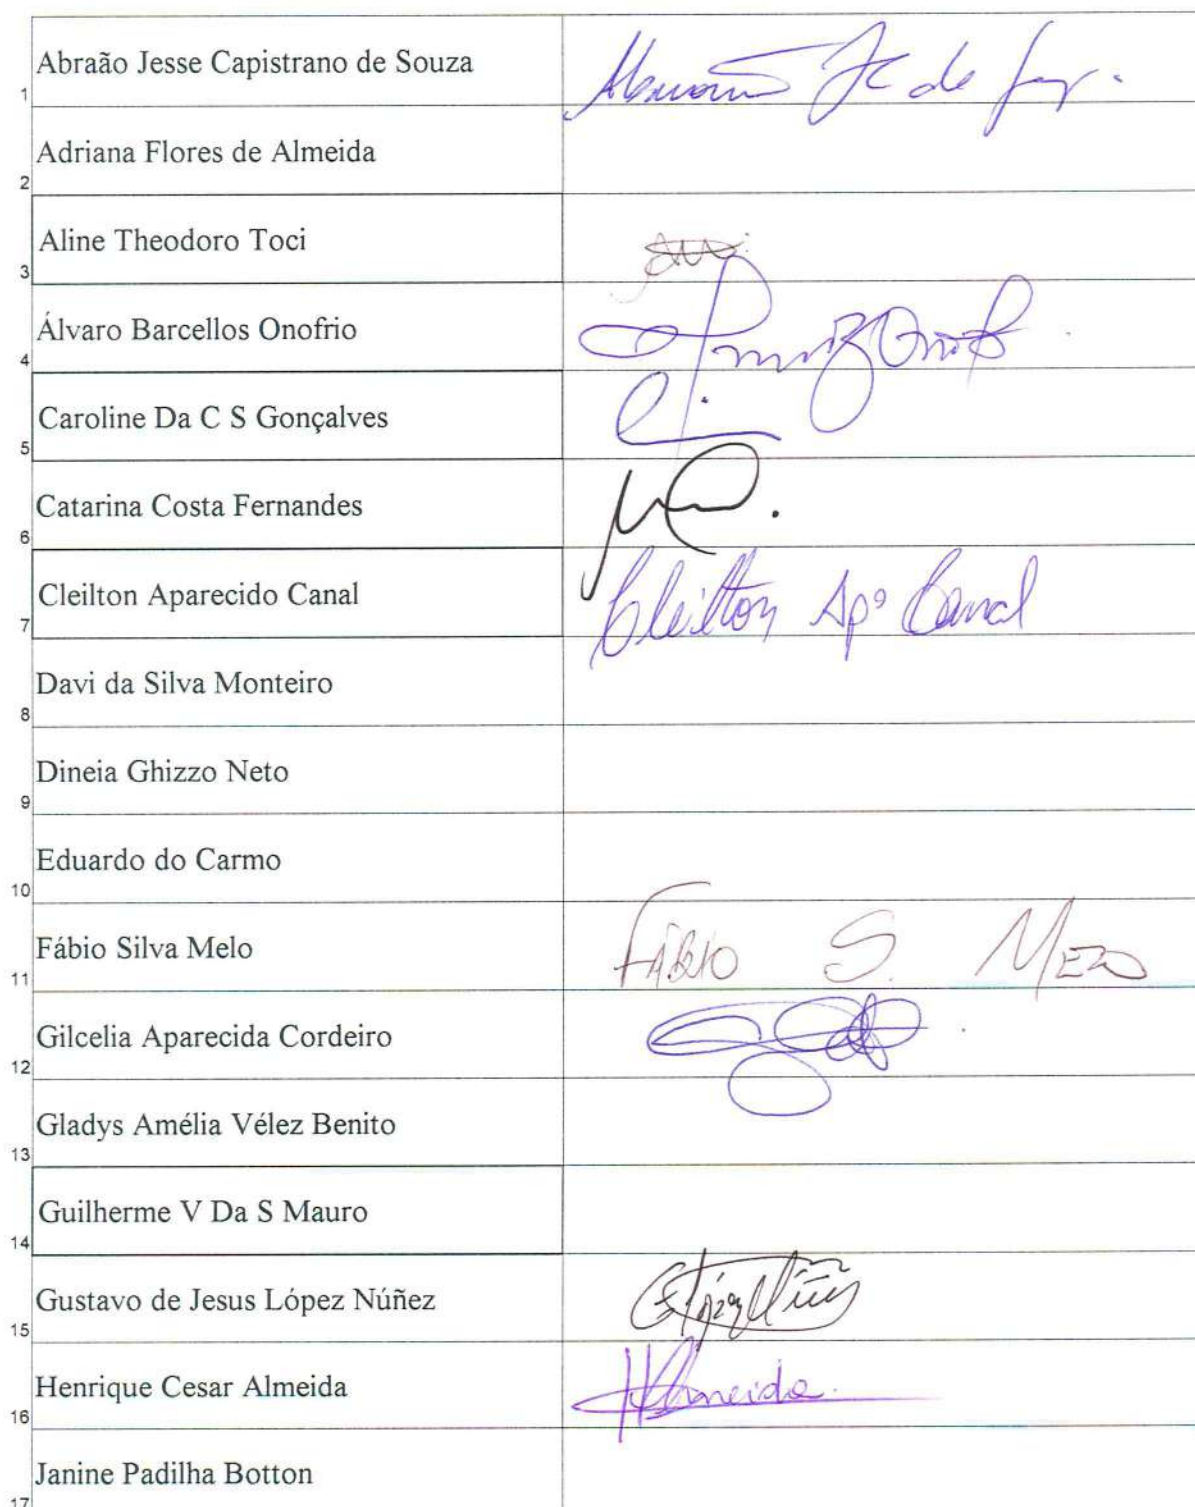 1 Abraão Jesse Capistrano de Souza
2 Adriana Flores de Almeida
3 Aline Theodoro Toci
4 Álvaro Barcellos Onofrio
5 Caroline Da C S Gonçalves
6 Catarina Costa Fernandes
7 Cleilton Aparecido Canal Cleilton Apº Canal
8 Davi da Silva Monteiro
9 Dineia Ghizzo Neto
10 Eduardo do Carmo
11 Fábio Silva Melo FÁBIO S. MELO
12 Gilcelia Aparecida Cordeiro
13 Gladys Amélia Vélez Benito
14 Guilherme V Da S Mauro
15 Gustavo de Jesus López Núñez
16 Henrique Cesar Almeida HAlmeida
17 Janine Padilha Botton